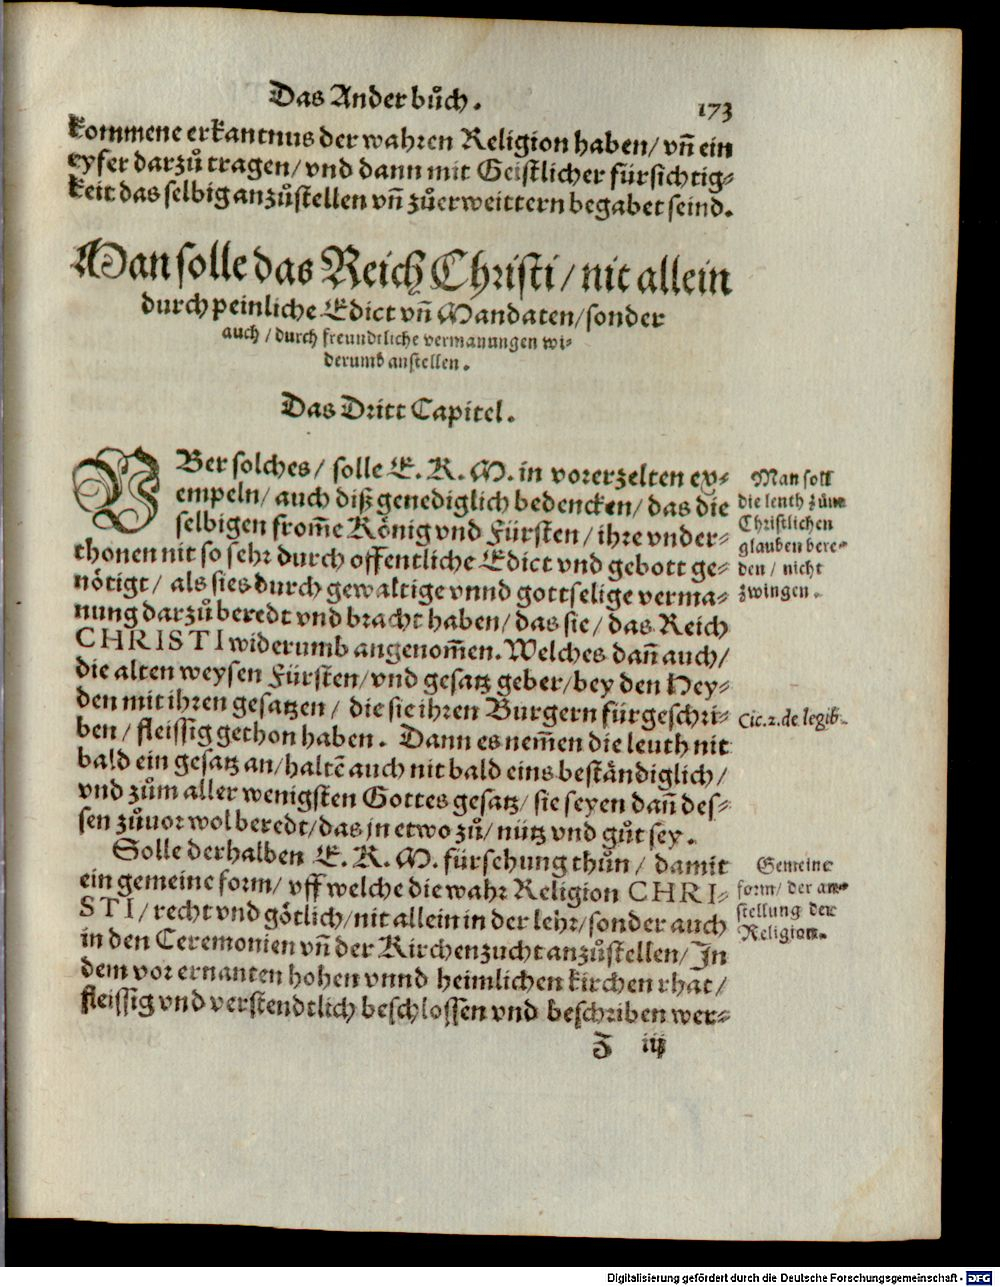 Das Ander bůch.
173
kommene erkantnus der wahren Religion haben/ vn̄ ein
eyfer darzů tragen/ vnd dann mit Geistlicher fürsichtig⸗
keit das selbig anzůstellen vn̄ zůerweittern begabet seind.
Man solle das Reich Christi/ nit allein
durch peinliche Edict vn̄ Mandaten/ sonder
auch/ durch freundtliche vermanungen wi⸗
derumb anstellen.
Das Dritt Capitel.
VBer solches/ solle E. K. M. in vorerzelten ex⸗
empeln/ auch diß genediglich bedencken/ das die
selbigen from̄e König vnd Fürsten/ ihre vnder⸗
thonen nit so sehr durch offentliche Edict vnd gebott ge⸗
nötigt/ als sies durch gewaltige vnnd gottselige verma⸗
nung darzů beredt vnd bracht haben/ das sie/ das Reich
CHRISTI widerumb angenom̄en. Welches dan̄ auch/
die alten weysen Fürsten/ vnd gesatz geber/ bey den Hey⸗
den mit ihren gesatzen/ die sie ihren Burgern fürgeschri⸗
ben/ fleissig gethon haben. Dann es nem̄en die leuth nit
bald ein gesatz an/ haltē auch nit bald eins beständiglich/
vnd zům aller wenigsten Gottes gesatz/ sie seyen dan̄ des⸗
sen zůuor wol beredt/ das jn etwo zů/ nütz vnd gůt sey.
Solle derhalben E. K. M. fürsehung thůn/ damit
ein gemeine form/ vff welche die wahr Religion CHRI⸗
STI/ recht vnd götlich/ nit allein in der lehr/ sonder auch
in den Ceremonien vn̄ der Kirchenzucht anzůstellen/ In
dem vor ernanten hohen vnnd heimlichen kirchen rhat/
fleissig vnd verstendtlich beschlossen vnd beschriben wer⸗
Z iij
Man soll
die leuth zům
Christlichen
glauben bere⸗
den/ nicht
zwingen.
Cic. 2. de legib.
Gemeine
form/ der an⸗
stellung der
Religion.
Digitalisierung gefördert durch die Deutsche Forschungsgemeinschaft - DFG